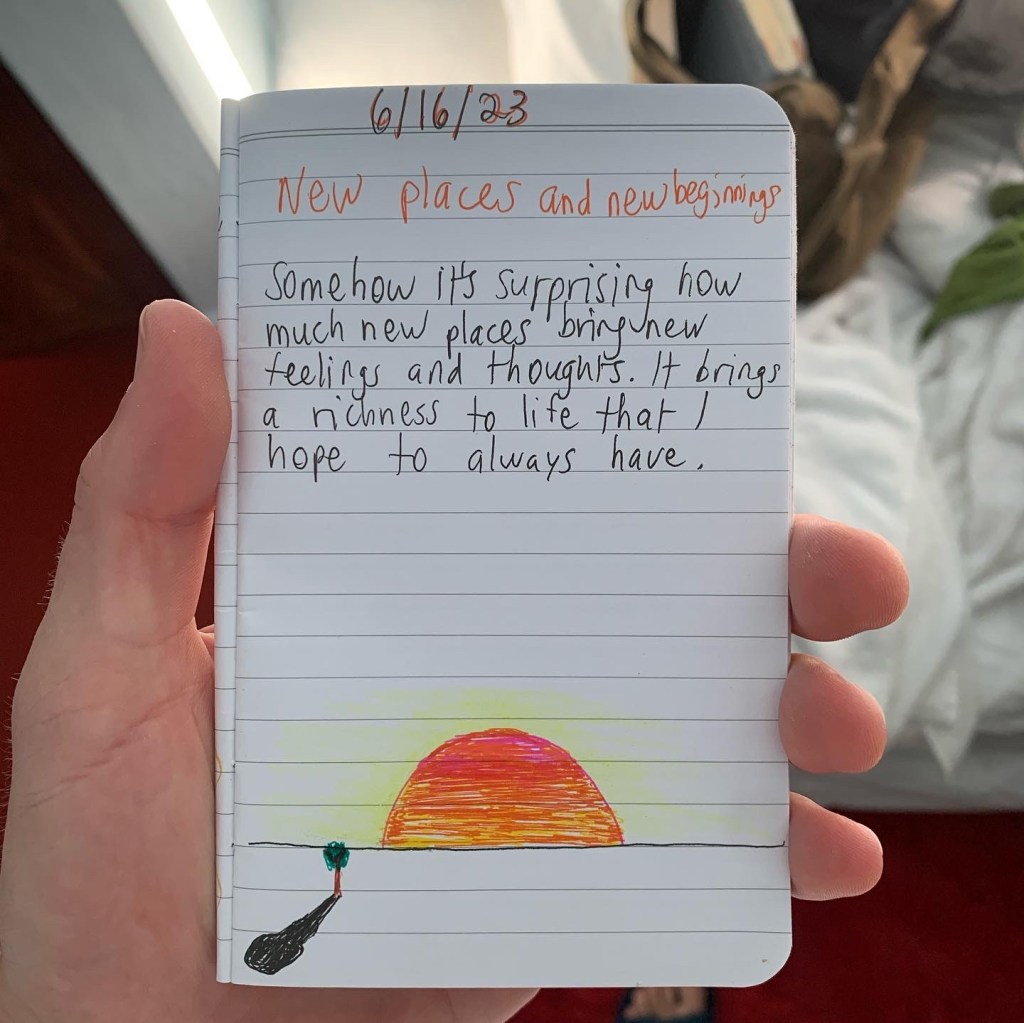 6/16/23
New places and new beginnings
Somehow it's surprising how
much new places bring new
feelings and thoughts. It brings
a richness to life that I
hope to always have.